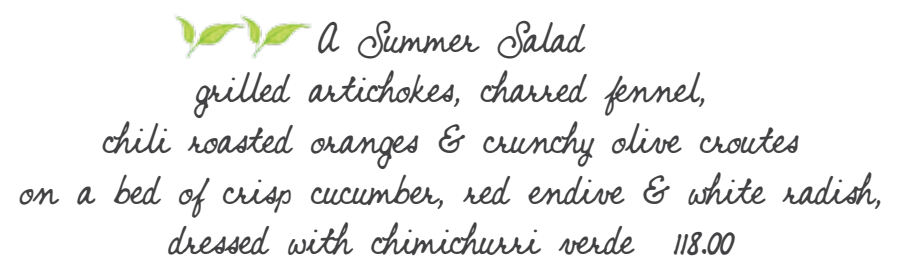 A Summer Salad
grilled artichokes, charred fennel,
chili roasted oranges & crunchy olive croutes
on a bed of crisp cucumber, red endive & white radish,
dressed with chimichurri verde 118.00